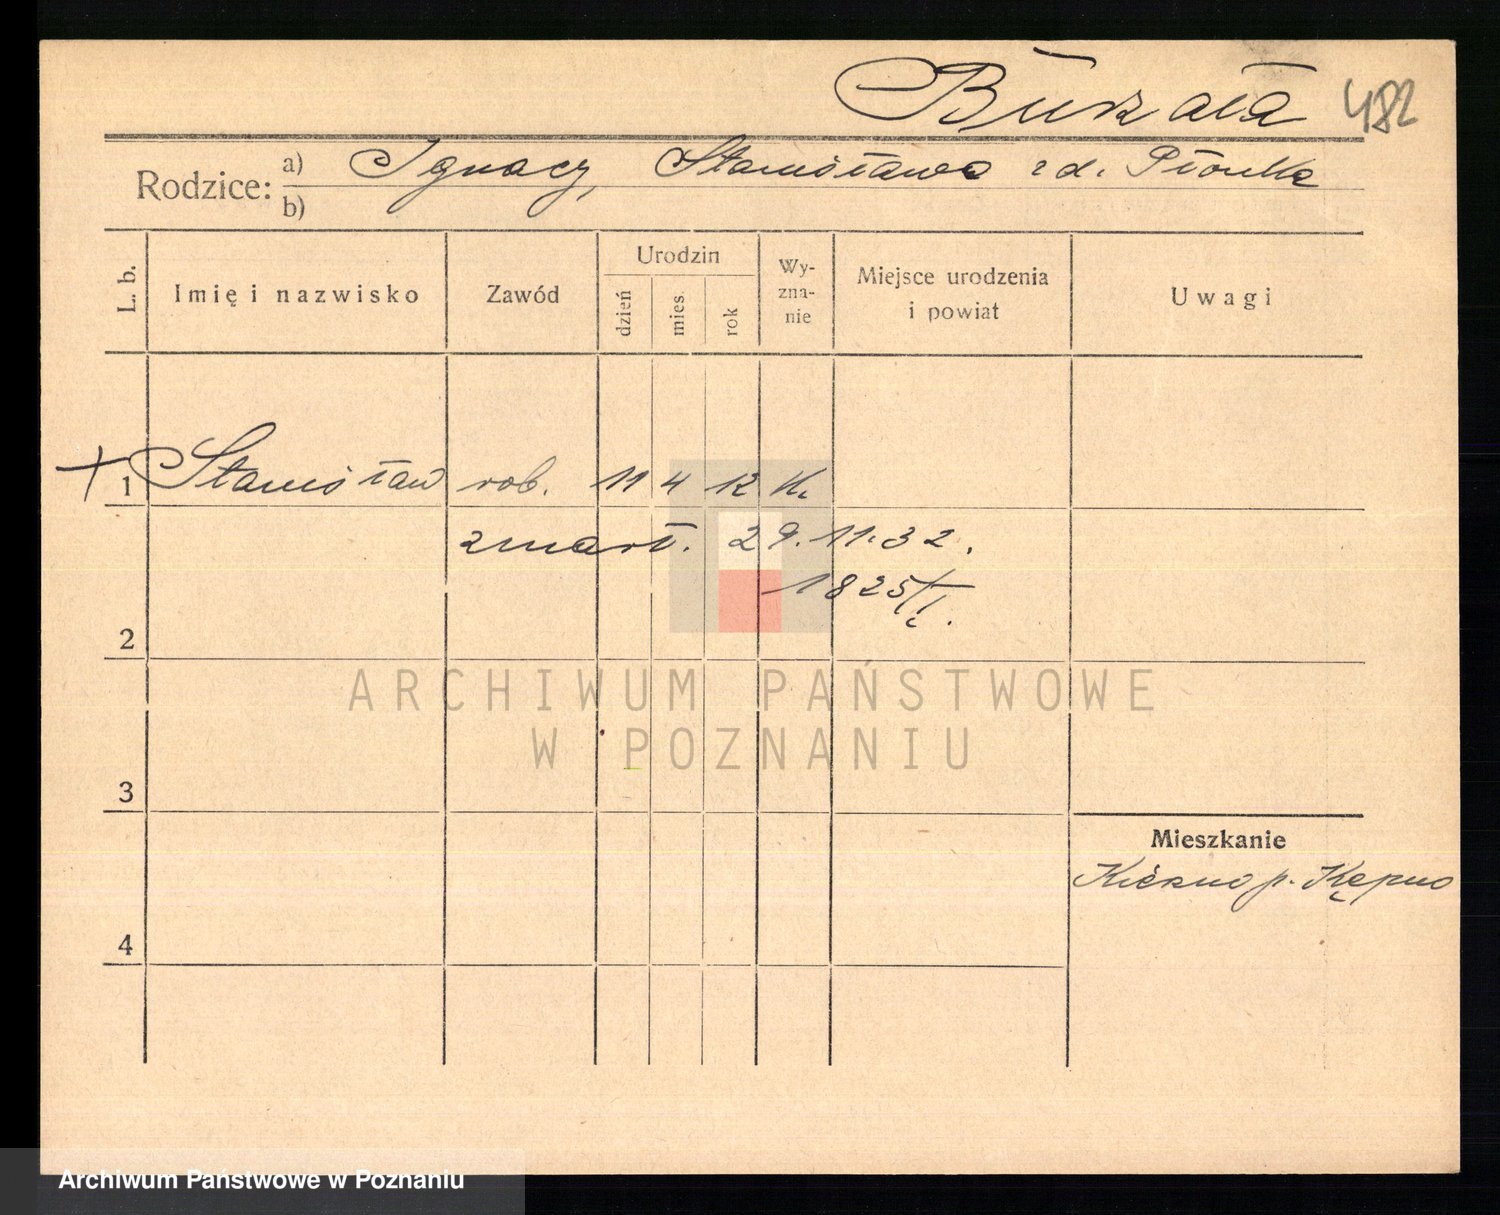 Burzała 482
Rodzice: a) Ignacy, Stanisława zd. Płonka
b)
L. b. Imię i nazwisko Zawód Urodzin dzień mies. rok Wyznanie Miejsce urodzenia i powiat Uwagi
+ 1 Stanisław rob. 11 4 12 K.
zmarł. 29.11.32.
1825/I.
2
ARCHIWUM PAŃSTWOWE
W POZNANIU
3
Mieszkanie
p. Kępno
4
Archiwum Państwowe w Poznaniu